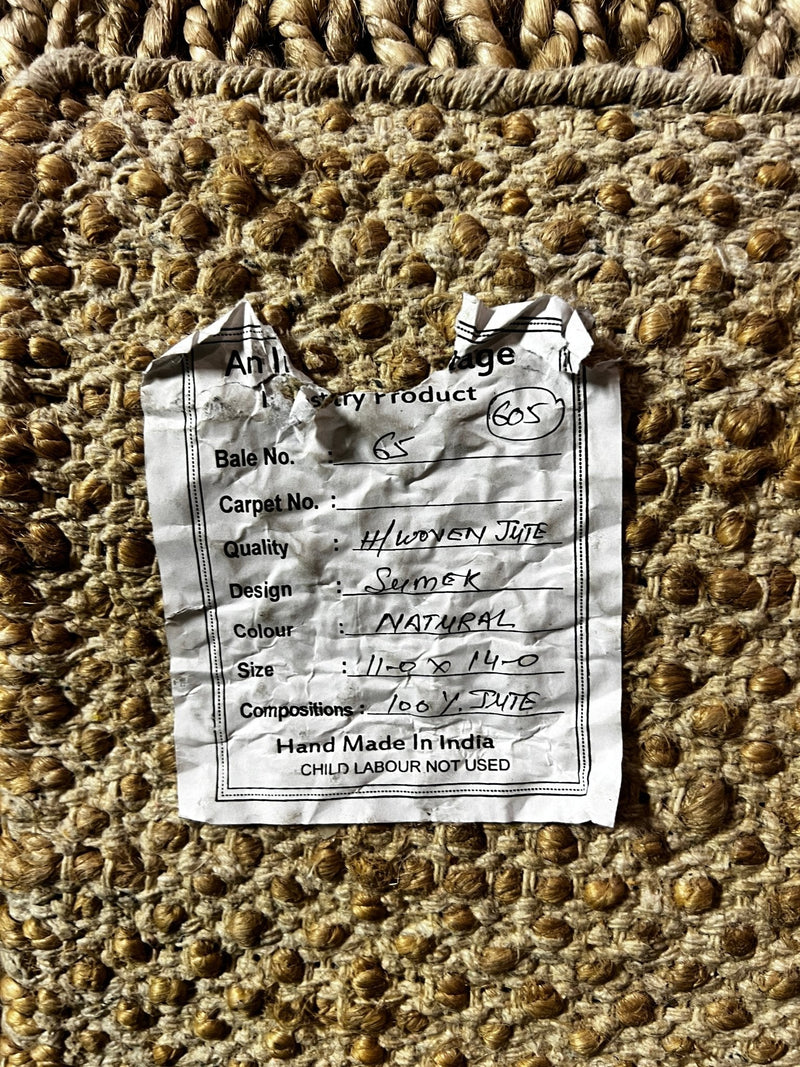 An
Product
605
Bale No. : 65
Carpet No. :
Quality : H/WOVEN JUTE
Design : SUMEK
Colour : NATURAL
Size : 11-0 x 14-0
Compositions : 100 %. JUTE
Hand Made In India
CHILD LABOUR NOT USED